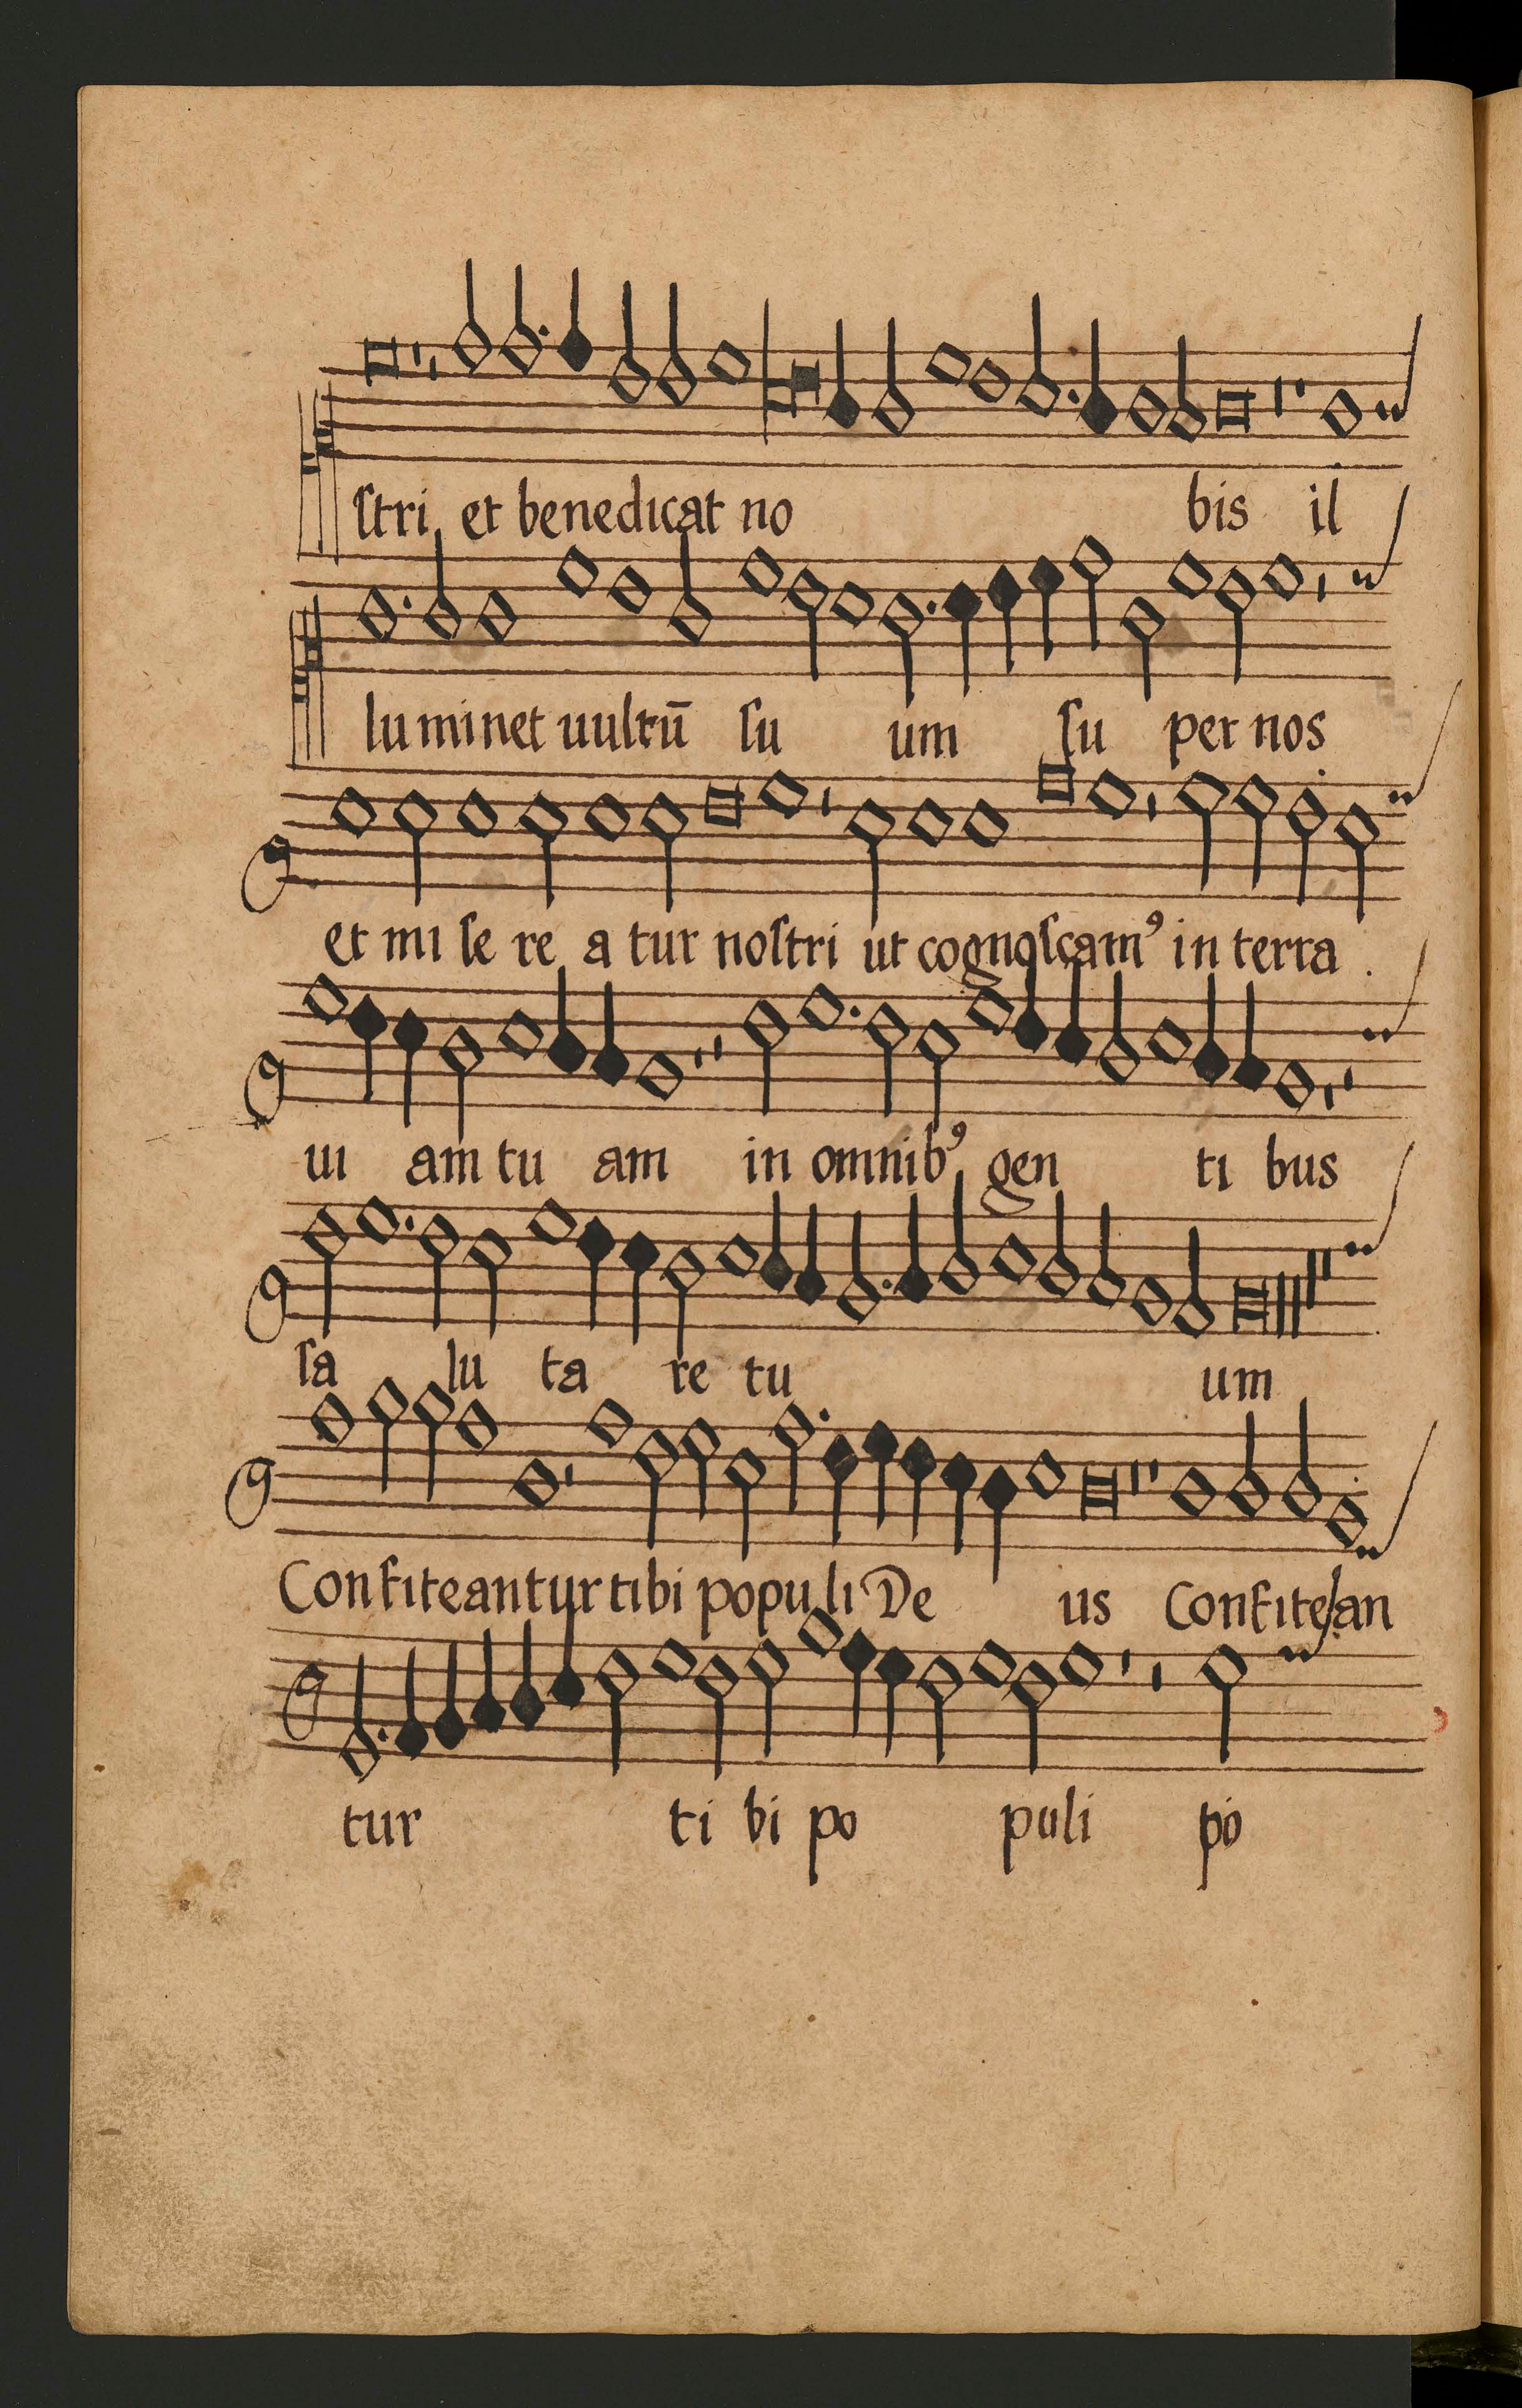 ſtri et benedicat no bis il
lu minet uultū ſu um ſu per nos
et mi ſe re a tur noſtri ut cognoſcamꝰ in terra
ui am tu am in omnibꝰ gen ti bus
ſa lu ta re tu um
Confiteantur tibi populi De us Confitean
tur ti bi po puli po